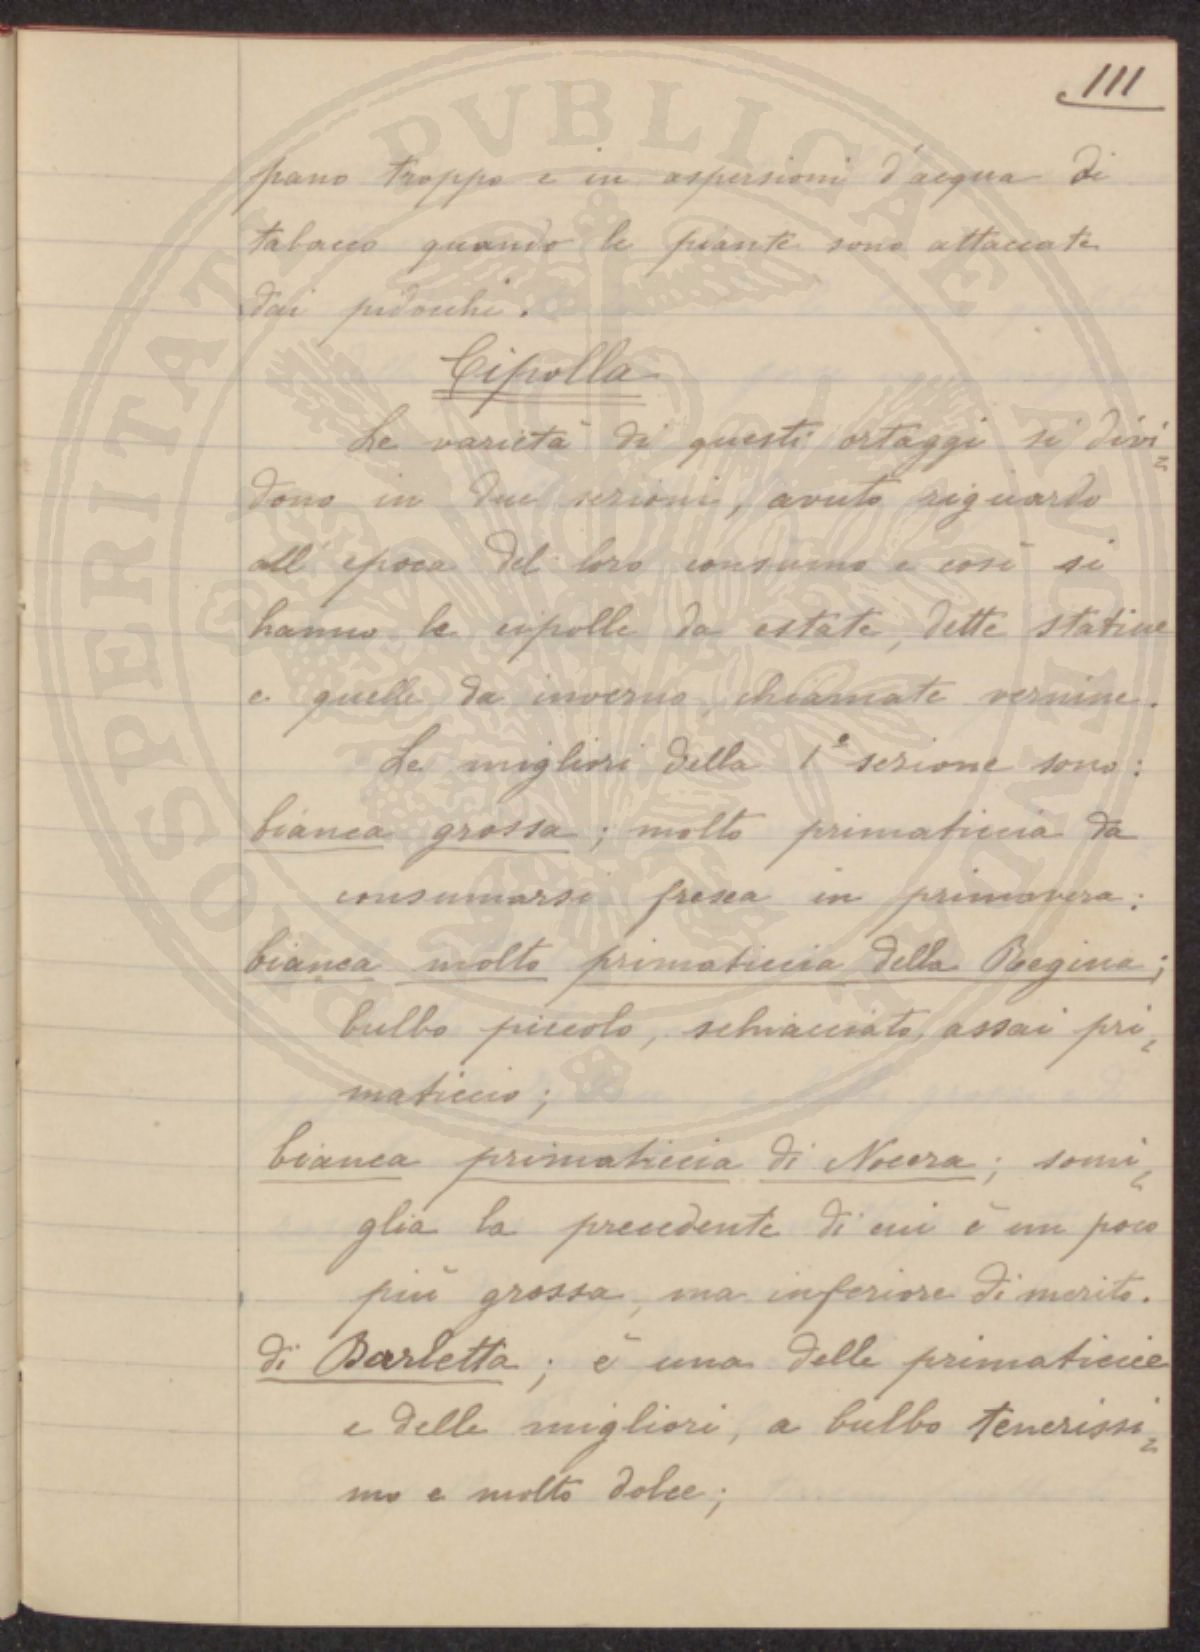 111
pano troppo e in aspersioni d'acqua di
tabacco quando le piante sono attaccate
dai pidocchi.
Cipolla
Le varietà di questi ortaggi si divi=
dono in due sezioni, avuto riguardo
all'epoca del loro consumo e così si
hanno le cipolle da estate, dette statine
e quelle da inverno, chiamate vernine.
Le migliori della 1ª sezione sono:
bianca grossa; molto primaticcia da
consumarsi fresca in primavera:
bianca molto primaticcia della Regina;
bulbo piccolo, schiacciato, assai pri=
maticcio;
bianca primaticcia di Nocera; somi=
glia la precedente di cui è un poco
più grossa, ma inferiore di merito.
di Barletta; è una delle primaticcie
e delle migliori, a bulbo tenerissi=
mo e molto dolce;
PVBLICAE
PROSPERITATI